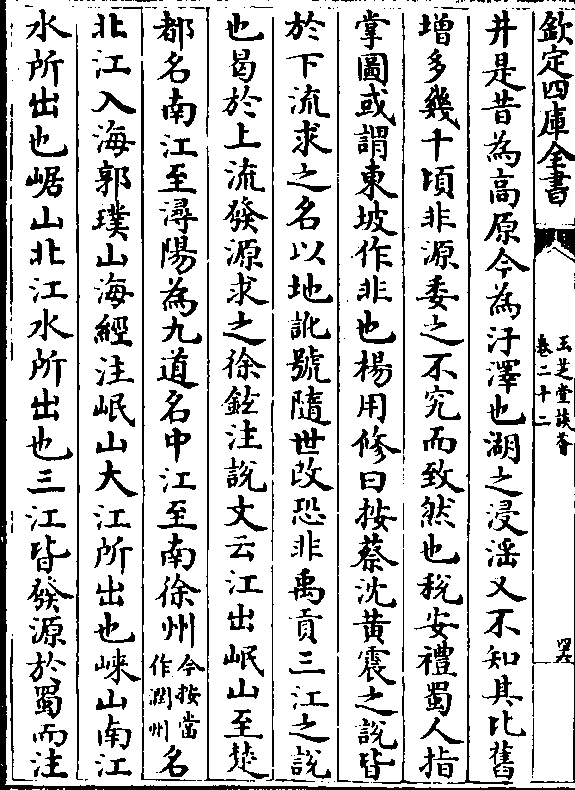 欽定四庫全書
玉芝堂談薈
卷二十二
四六
井是昔為高原今為汙澤也湖之浸滛又不知其比舊
增多幾十頃非源委之不究而致然也稅安禮蜀人指
掌圖或謂東坡作非也楊用修曰按蔡沈黄震之說皆
於下流求之名以地訛號隨世改恐非禹貢三江之說
也曷於上流發源求之徐鉉注說文云江出岷山至楚
都名南江至潯陽為九道名中江至南徐州今按當作潤州名
北江入海郭璞山海經注岷山大江所出也崍山南江
水所出也崌山北江水所出也三江皆發源於蜀而注